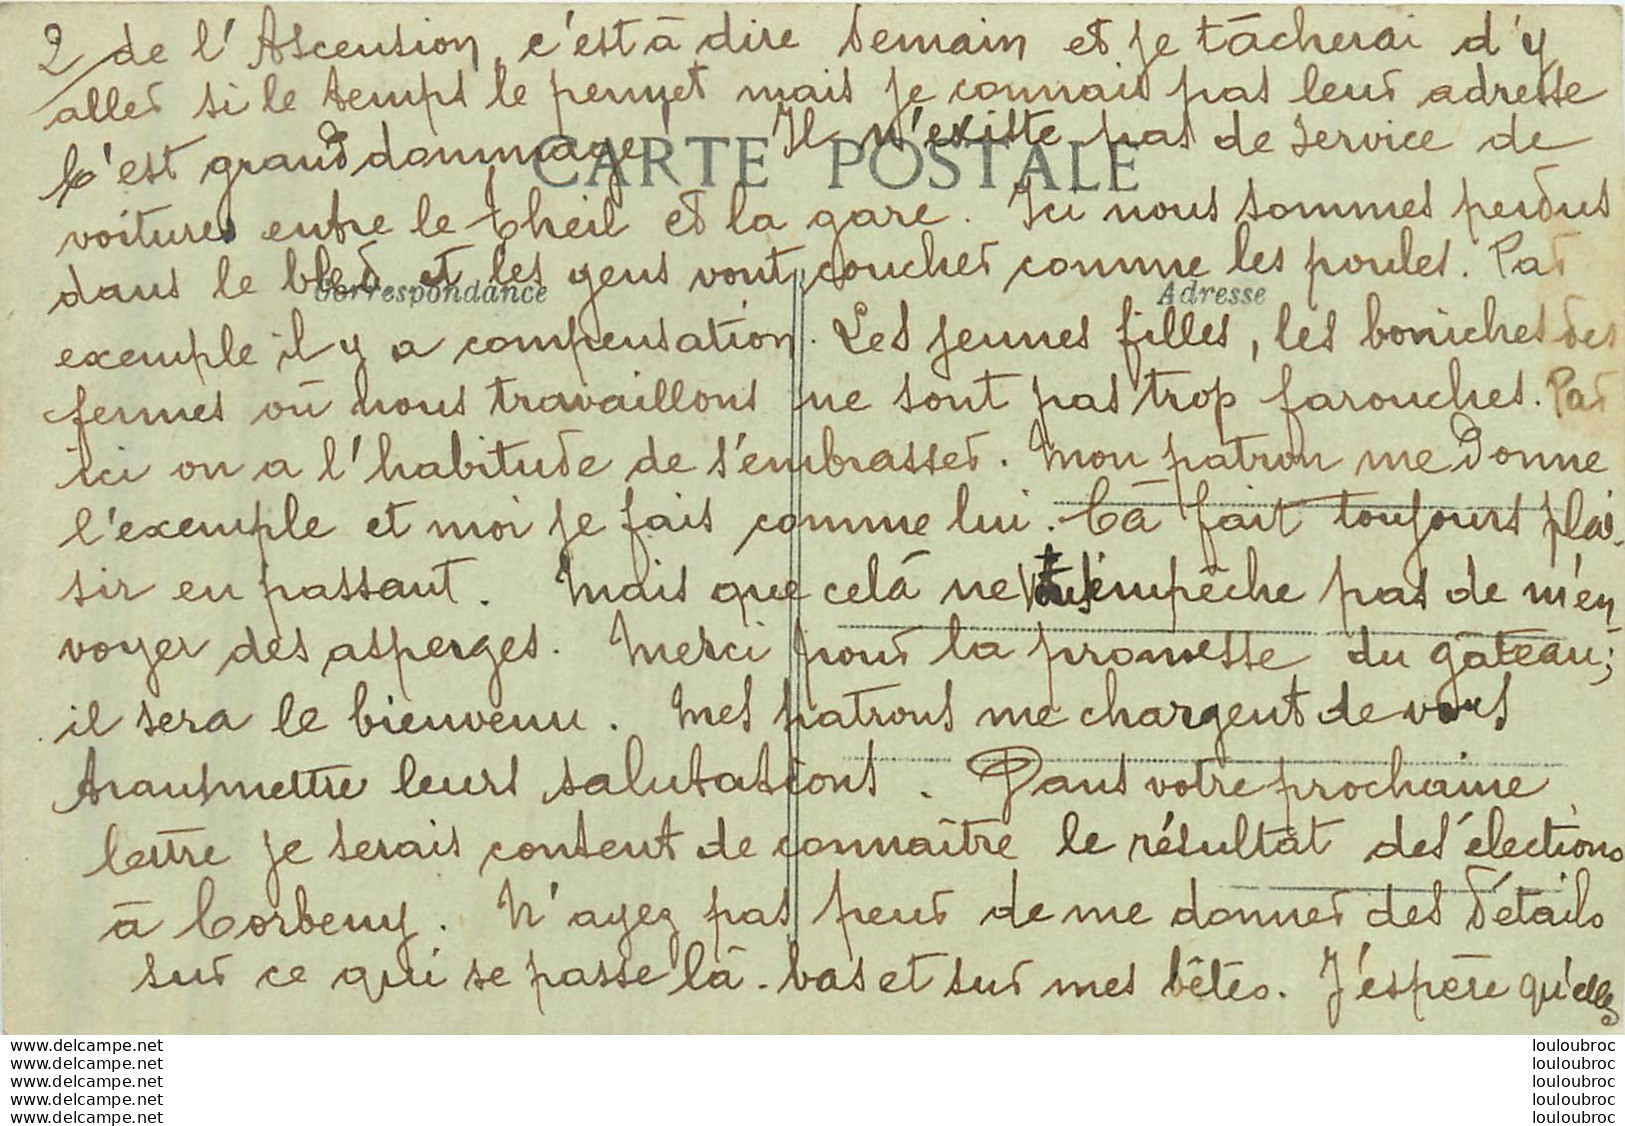 2 de l'Ascension, c'est à dire demain et je tâcherai d'y
aller si le temps le permet mais je connais pas leur adresse
C'est grand dommage. Il n'existe pas de service de
CARTE POSTALE
voitures entre le Theil et la gare. Ici nous sommes perdus
dans le bled et les gens vont coucher comme les poules. Par
Correspondance
Adresse
exemple il y a compensation. Les jeunes filles, les boniches des
fermes où nous travaillons ne sont pas trop farouches. Par
ici on a l'habitude de s'embrasser. Mon patron me donne
l'exemple et moi je fais comme lui. Cà fait toujours plai-
sir en passant. Mais que celà ne vous empêche pas de m'en
voyer des asperges. Merci pour la promesse du gâteau;
il sera le bienvenu. Mes patrons me chargent de vous
transmettre leurs salutations. Dans votre prochaine
lettre je serais content de connaître le résultat des élections
à Corbeny. N'ayez pas peur de me donner des détails
sur ce qui se passe là-bas et sur mes bêtes. J'espère qu'elles
www.delcampe.net
www.delcampe.net
www.delcampe.net
www.delcampe.net
www.delcampe.net
louloubroc
louloubroc
louloubroc
louloubroc
louloubroc